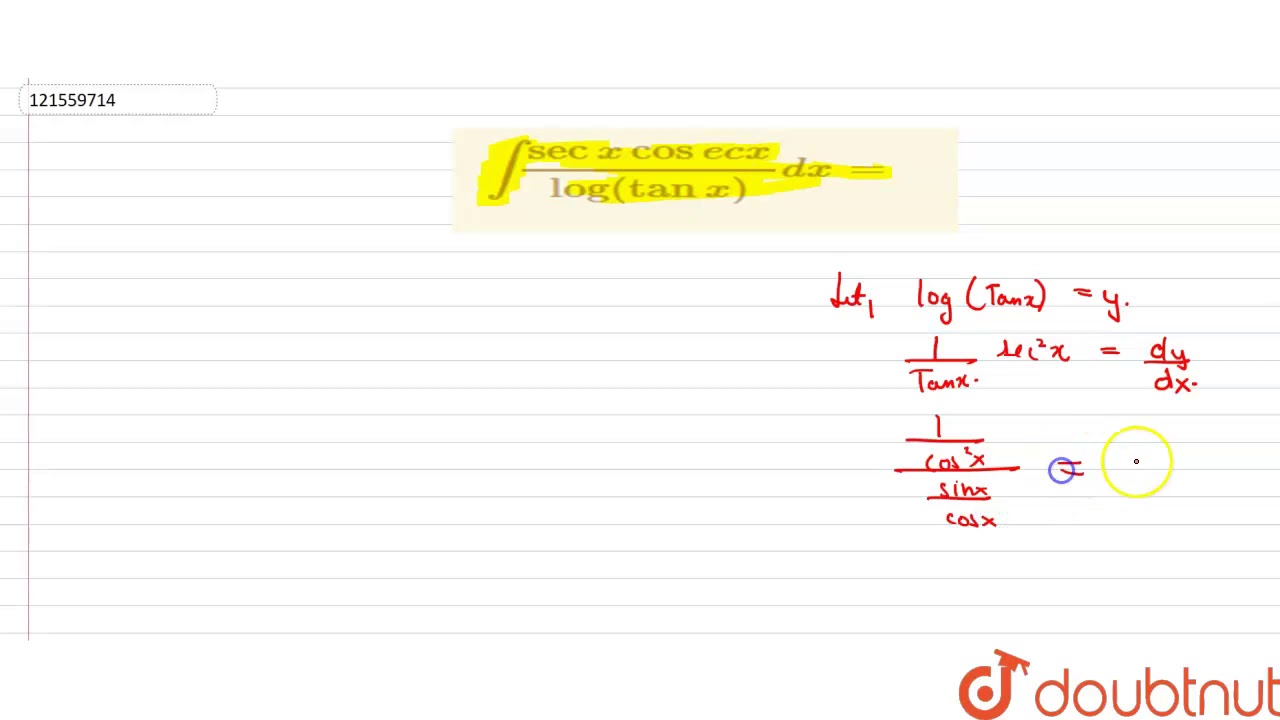 121559714
∫ sec x cos ecx / log(tan x) dx =
Let, log (Tanx) = y.
1/Tanx. sec²x = dy/dx.
1/cos²x / sinx/cosx =
doubtnut